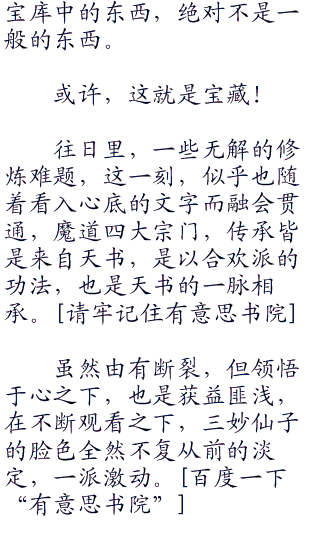 宝库中的东西，绝对不是一
般的东西。
或许，这就是宝藏！
往日里，一些无解的修
炼难题，这一刻，似乎也随
着看入心底的文字而融会贯
通，魔道四大宗门，传承皆
是来自天书，是以合欢派的
功法，也是天书的一脉相
承。[请牢记住有意思书院]
虽然由有断裂，但领悟
于心之下，也是获益匪浅，
在不断观看之下，三妙仙子
的脸色全然不复从前的淡
定，一派激动。[百度一下
“有意思书院”]